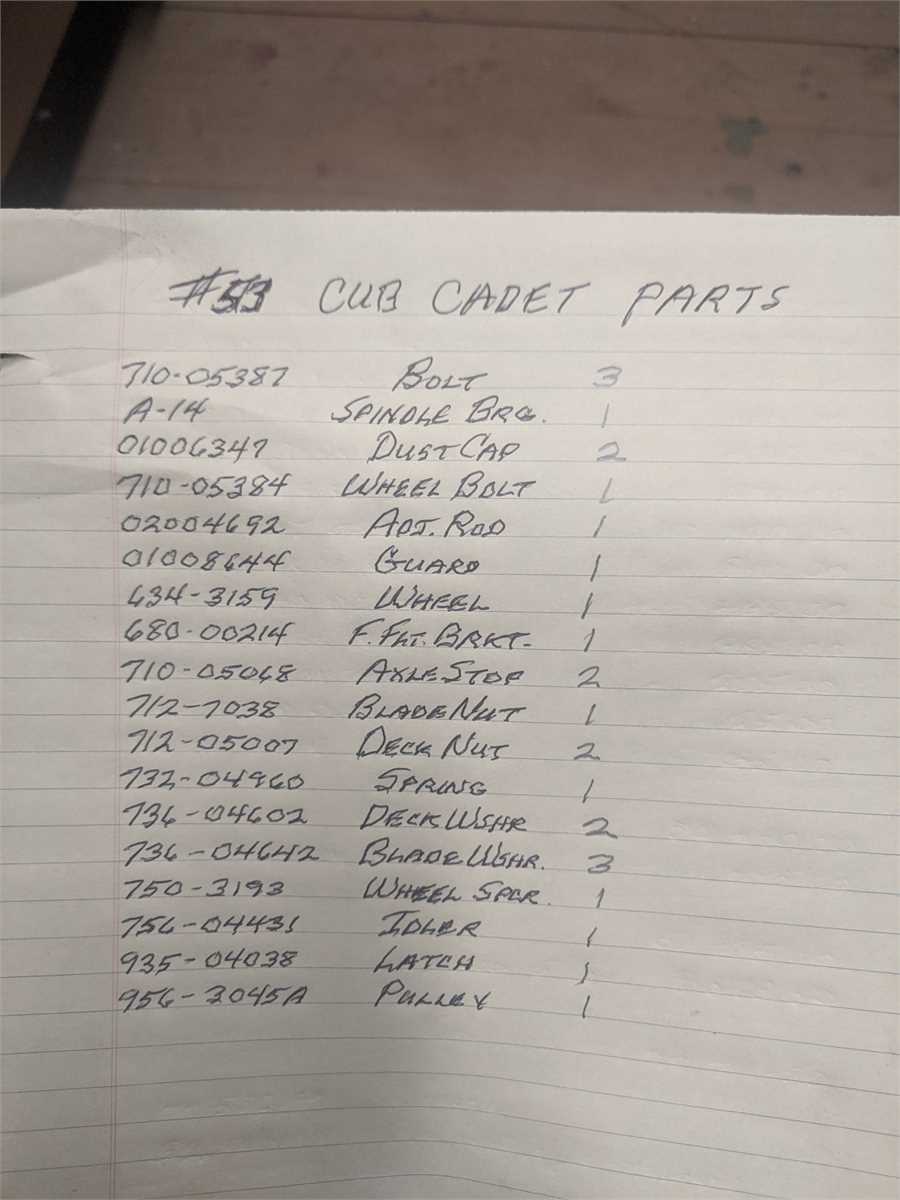 CUB CADET PARTS
710-05387 BOLT 3
A-14 SPINDLE BRG. 1
01006347 DUST CAP 2
710-05384 WHEEL BOLT 1
02004692 ADJ. ROD 1
01008644 GUARD 1
634-3159 WHEEL 1
680-00214 F. FLT. BRKT- 1
710-05068 AXLE STOP 2
712-7038 BLADE NUT 1
712-05007 DECK NUT 2
732-04960 SPRING 1
736-04602 DECK WSHR 2
736-04642 BLADE WSHR. 3
750-3193 WHEEL SPCR. 1
756-04431 IDLER 1
935-04038 LATCH 1
956-3045A PULLEY 1